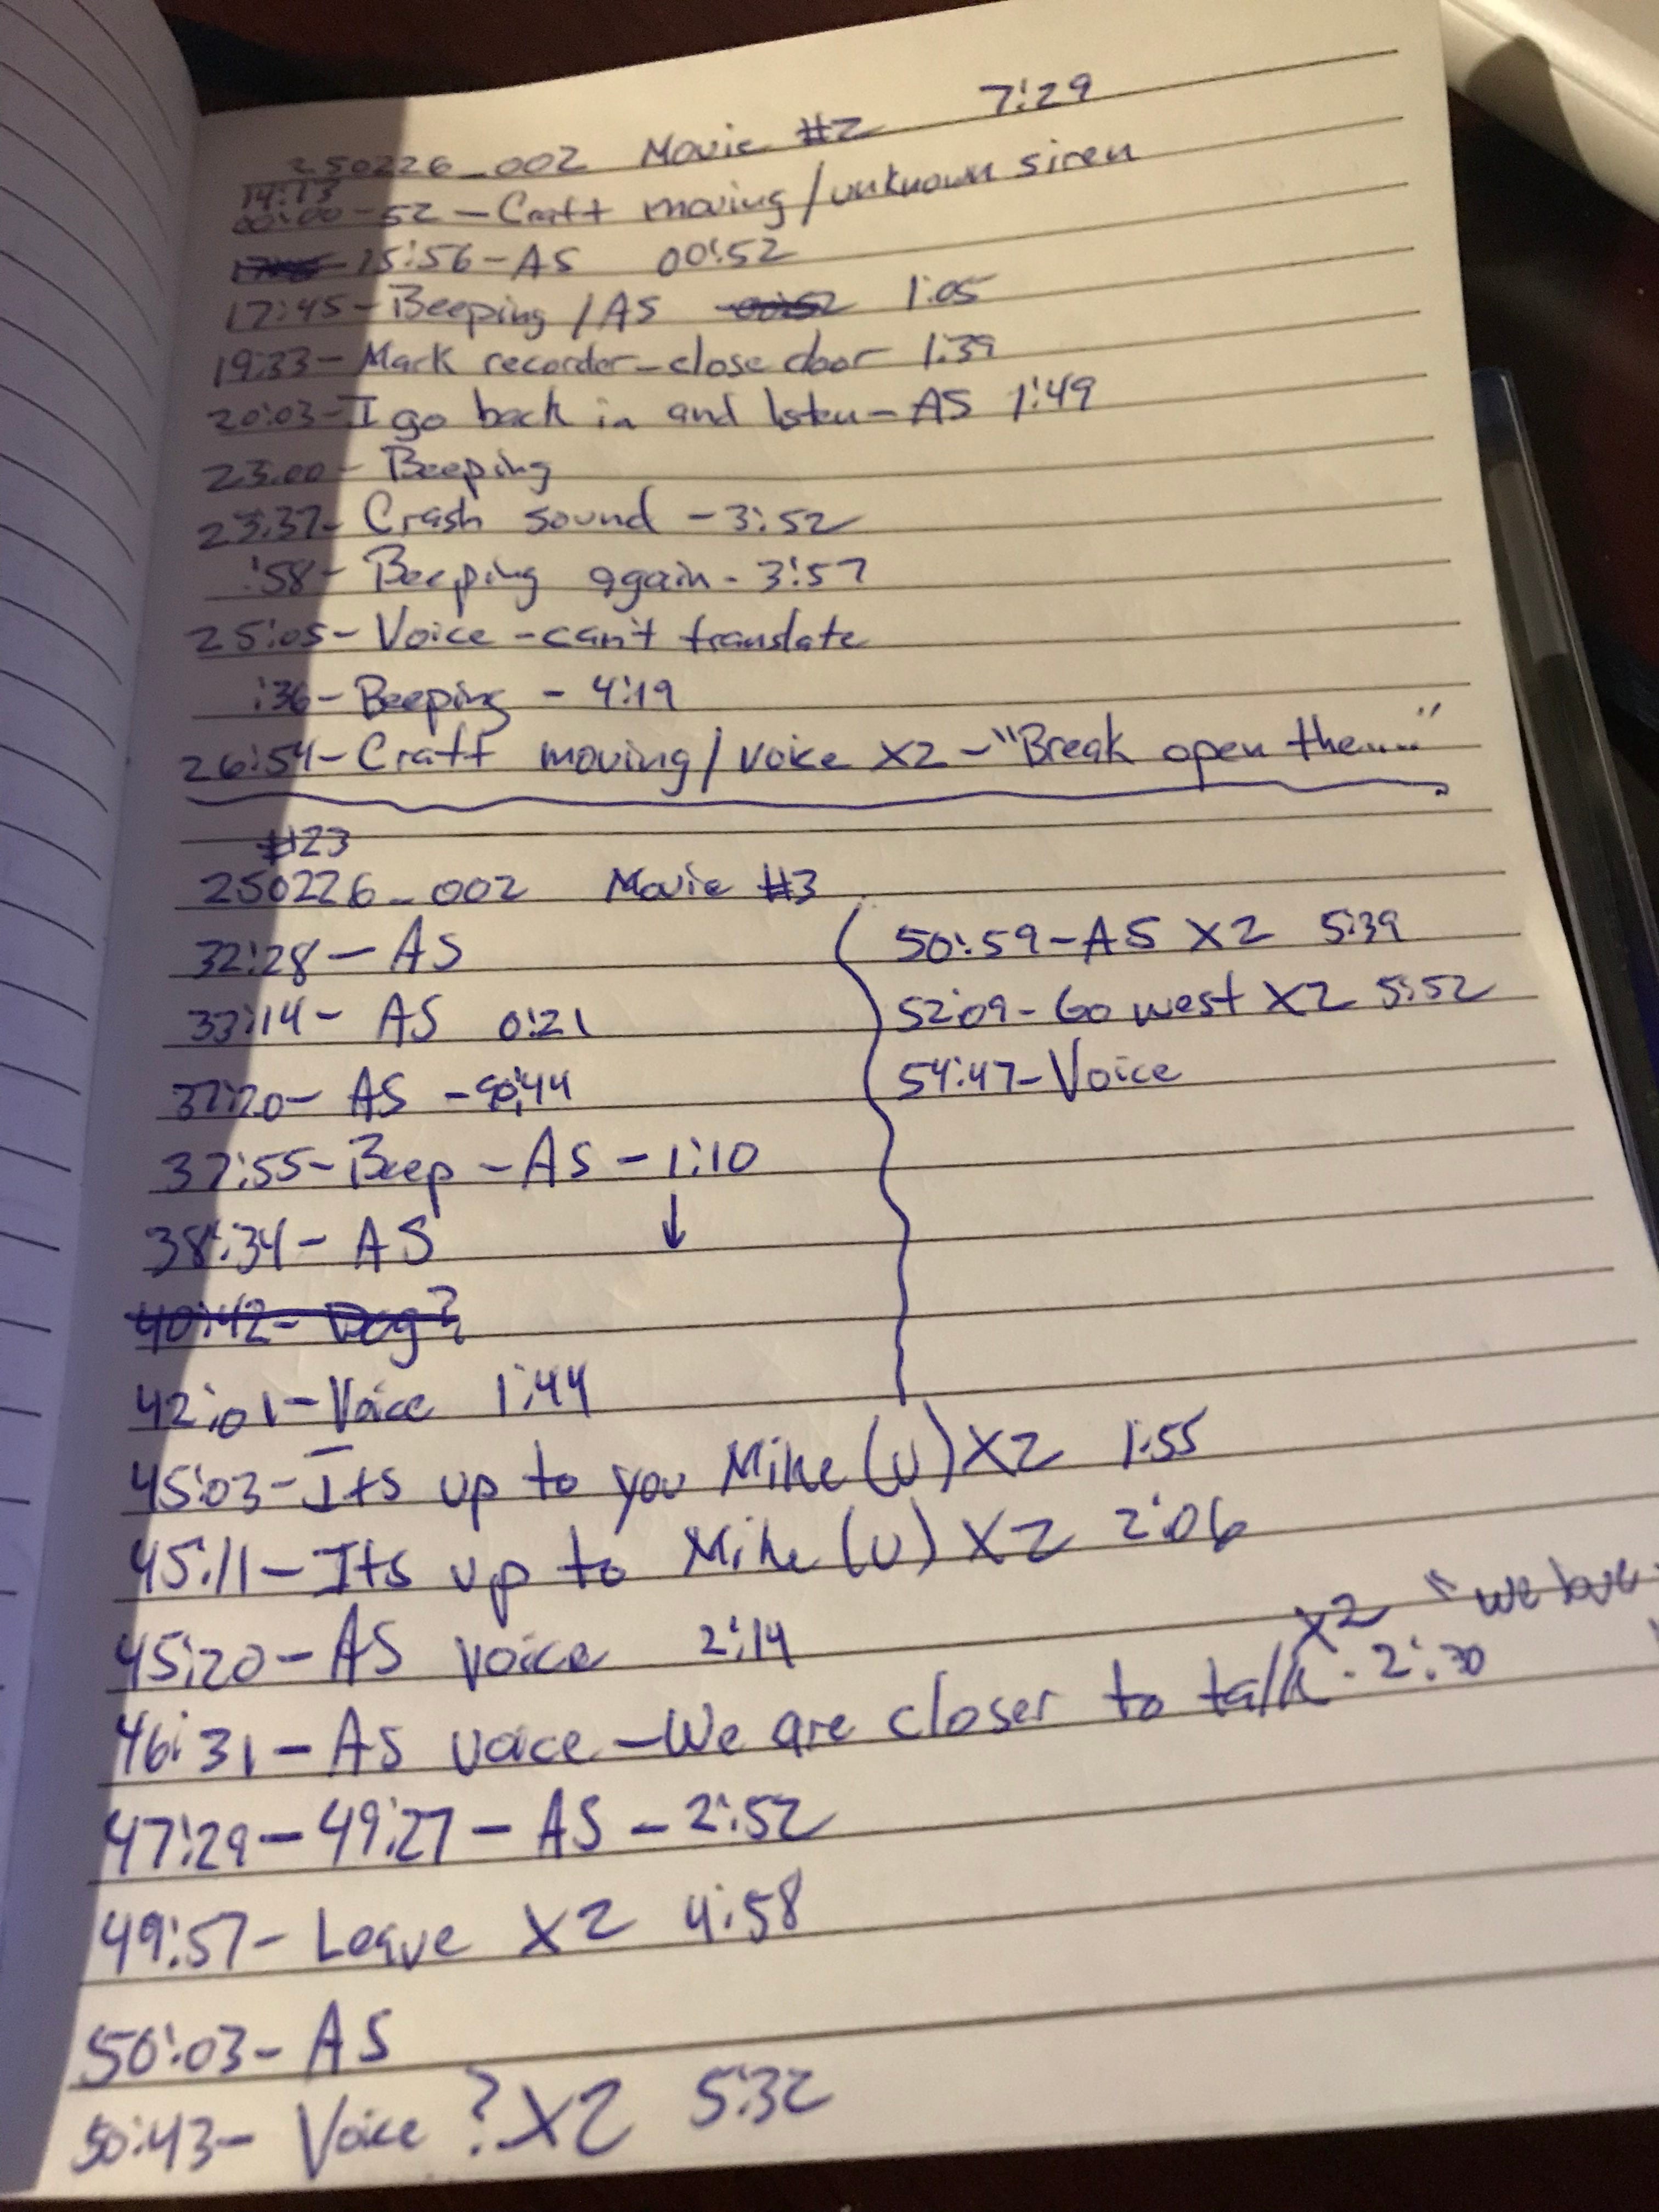 250226_002 Movie #2 7:29
14:13
00:00-52-Craft moving/unknown siren
15:56-AS 00:52
17:45-Beeping/AS 00:52 1:05
19:33-Mark recorder-close door 1:39
20:03-I go back in and listen-AS 1:49
23:00-Beeping
23:37-Crash sound-3:52
:58-Beeping again-3:57
25:05-Voice-can't translate
:36-Beeping-4:19
26:54-Craft moving/voice X2-"Break open the....."
#23
250226_002 Movie #3
32:28-AS
33:14-AS 0:21
37:20-AS -0:44
37:55-Beep-AS-1:10
↓
38:34-AS
40:42-Dog?
42:01-Voice 1:44
50:59-AS X2 5:39
52:09-Go west X2 5:52
54:47-Voice
45:03-Its up to you Mike (U) X2 1:55
45:11-Its up to Mike (U) X2 2:06
45:20-AS voice 2:14
X2 "we
46:31-AS voice-We are closer to talk. 2:30
47:29-49:27-AS-2:52
49:57-Leave X2 4:58
50:03-AS
50:43-Voice ? X2 5:32